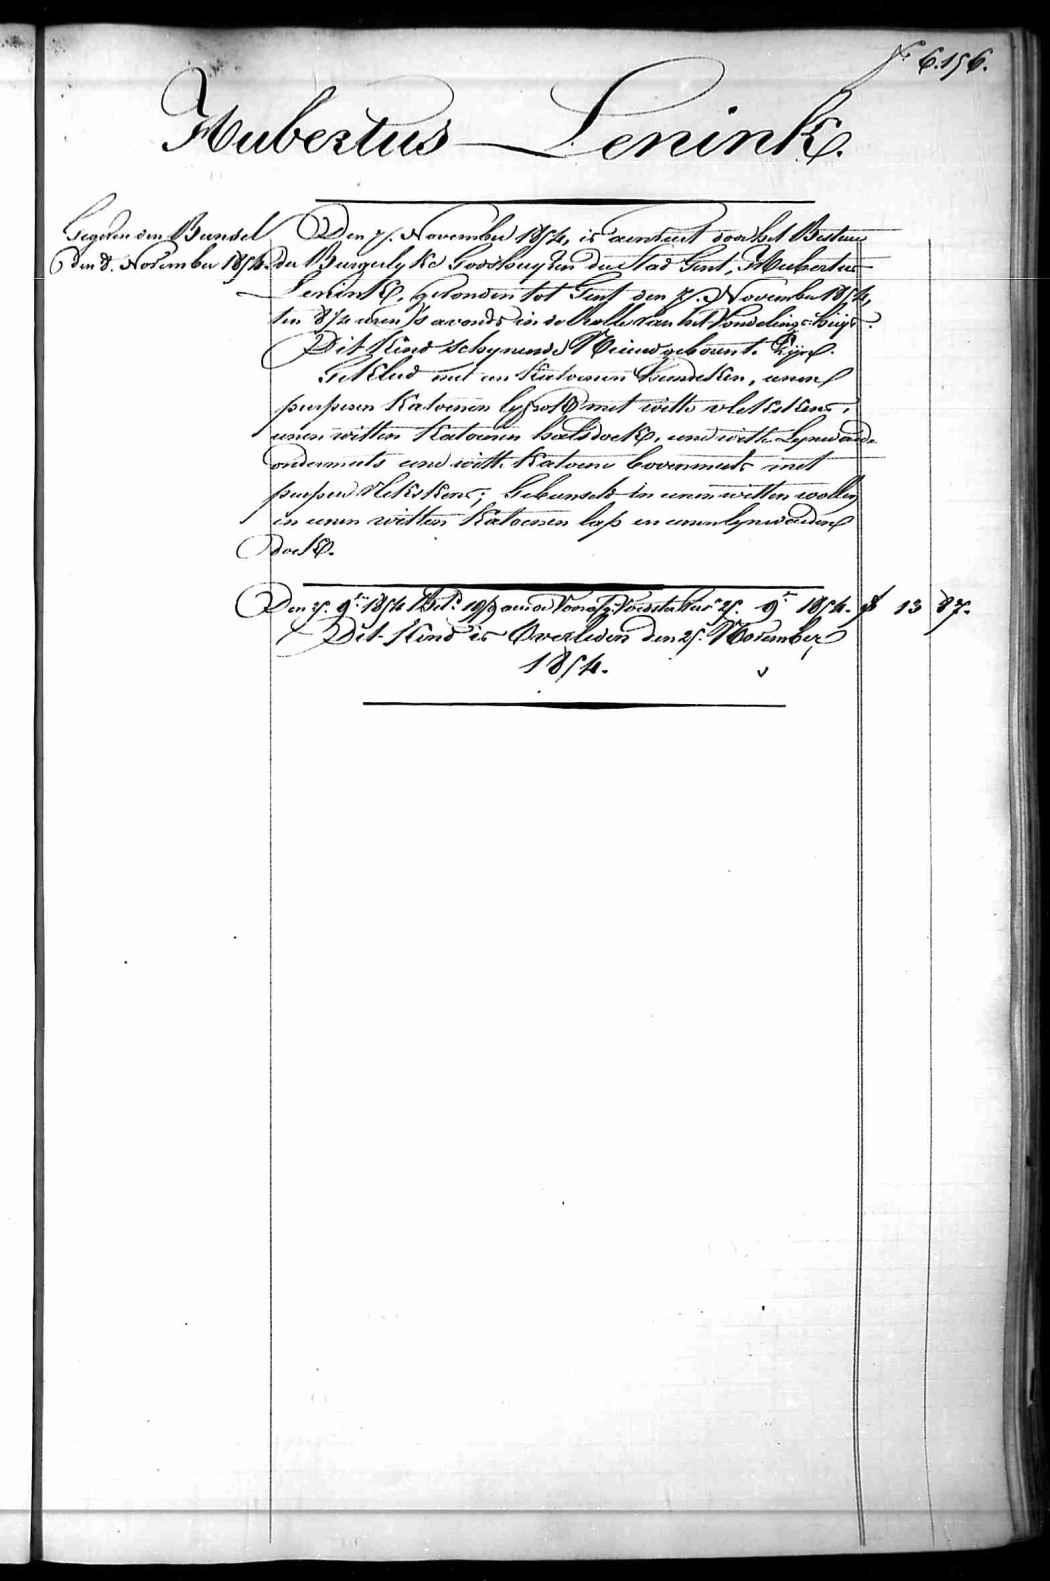 f.o 6.156.
Hubertus Lenink.
Gegeven den Bunsel
den 8. November 1854.
Den 7. November 1854, is aenveert door het Bestuer
der Burgerlyke Godshuyzen der Stad Gent, Hubertus
Lenink, gevonden tot Gent den 7. November 1854,
ten 8 1/4 uren 's avonds in de Rolle van het Vondelings-huys.
Dit Kind schynende Nieuwgeboren te zyn.
Gekleed met een Katoenen hemdeken, eenen
purperen Katoenen lyfrok met witte vlekskens,
eenen witten Katoenen halsdoek, eene witte Lynwaede
ondermuts eene witte Katoene bovenmuts met
purpere vlekskens; Gebunseld in eenen witten wollen
en eenen witten Katoenen lap en eenen lynwaeden
doek.
Den 25. 9bre 1854 Bet. aen de 25. 9bre 1854. f 13 87.
Dit Kind is Overleden den 25. November
1854.